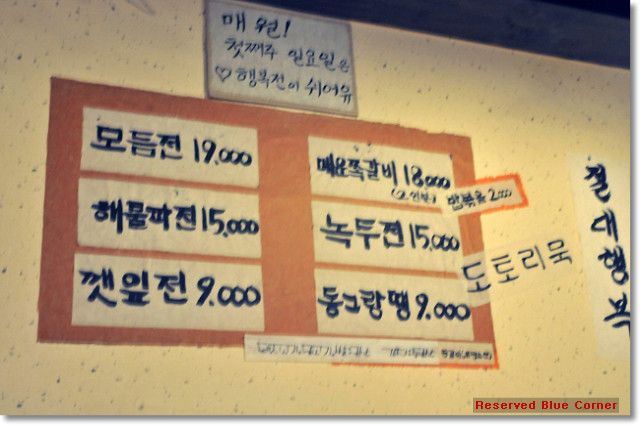 매월!
첫째주 일요일은
♡행복전이 쉬어유
모듬전 19,000
해물파전 15,000
깻잎전 9,000
매운쪽갈비 18,000
(2인분)
밥볶음 2000
녹두전 15,000
동그랑땡 9,000
도토리묵
절대행복
Reserved Blue Corner